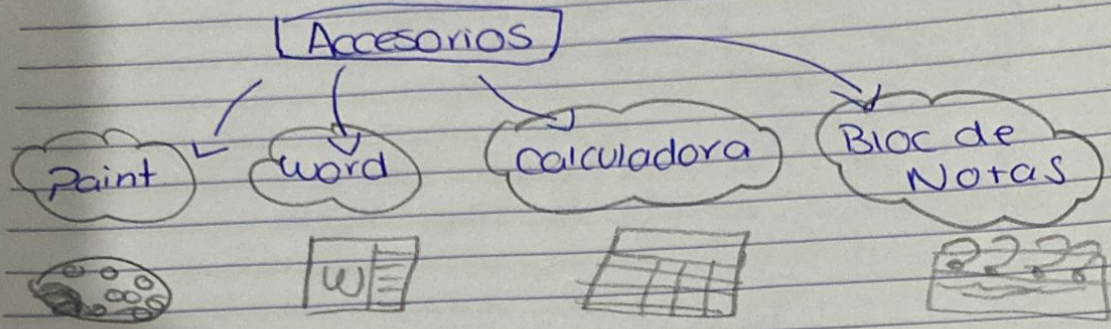 Accesorios
Paint
Word
Calculadora
Bloc de
Notas
W